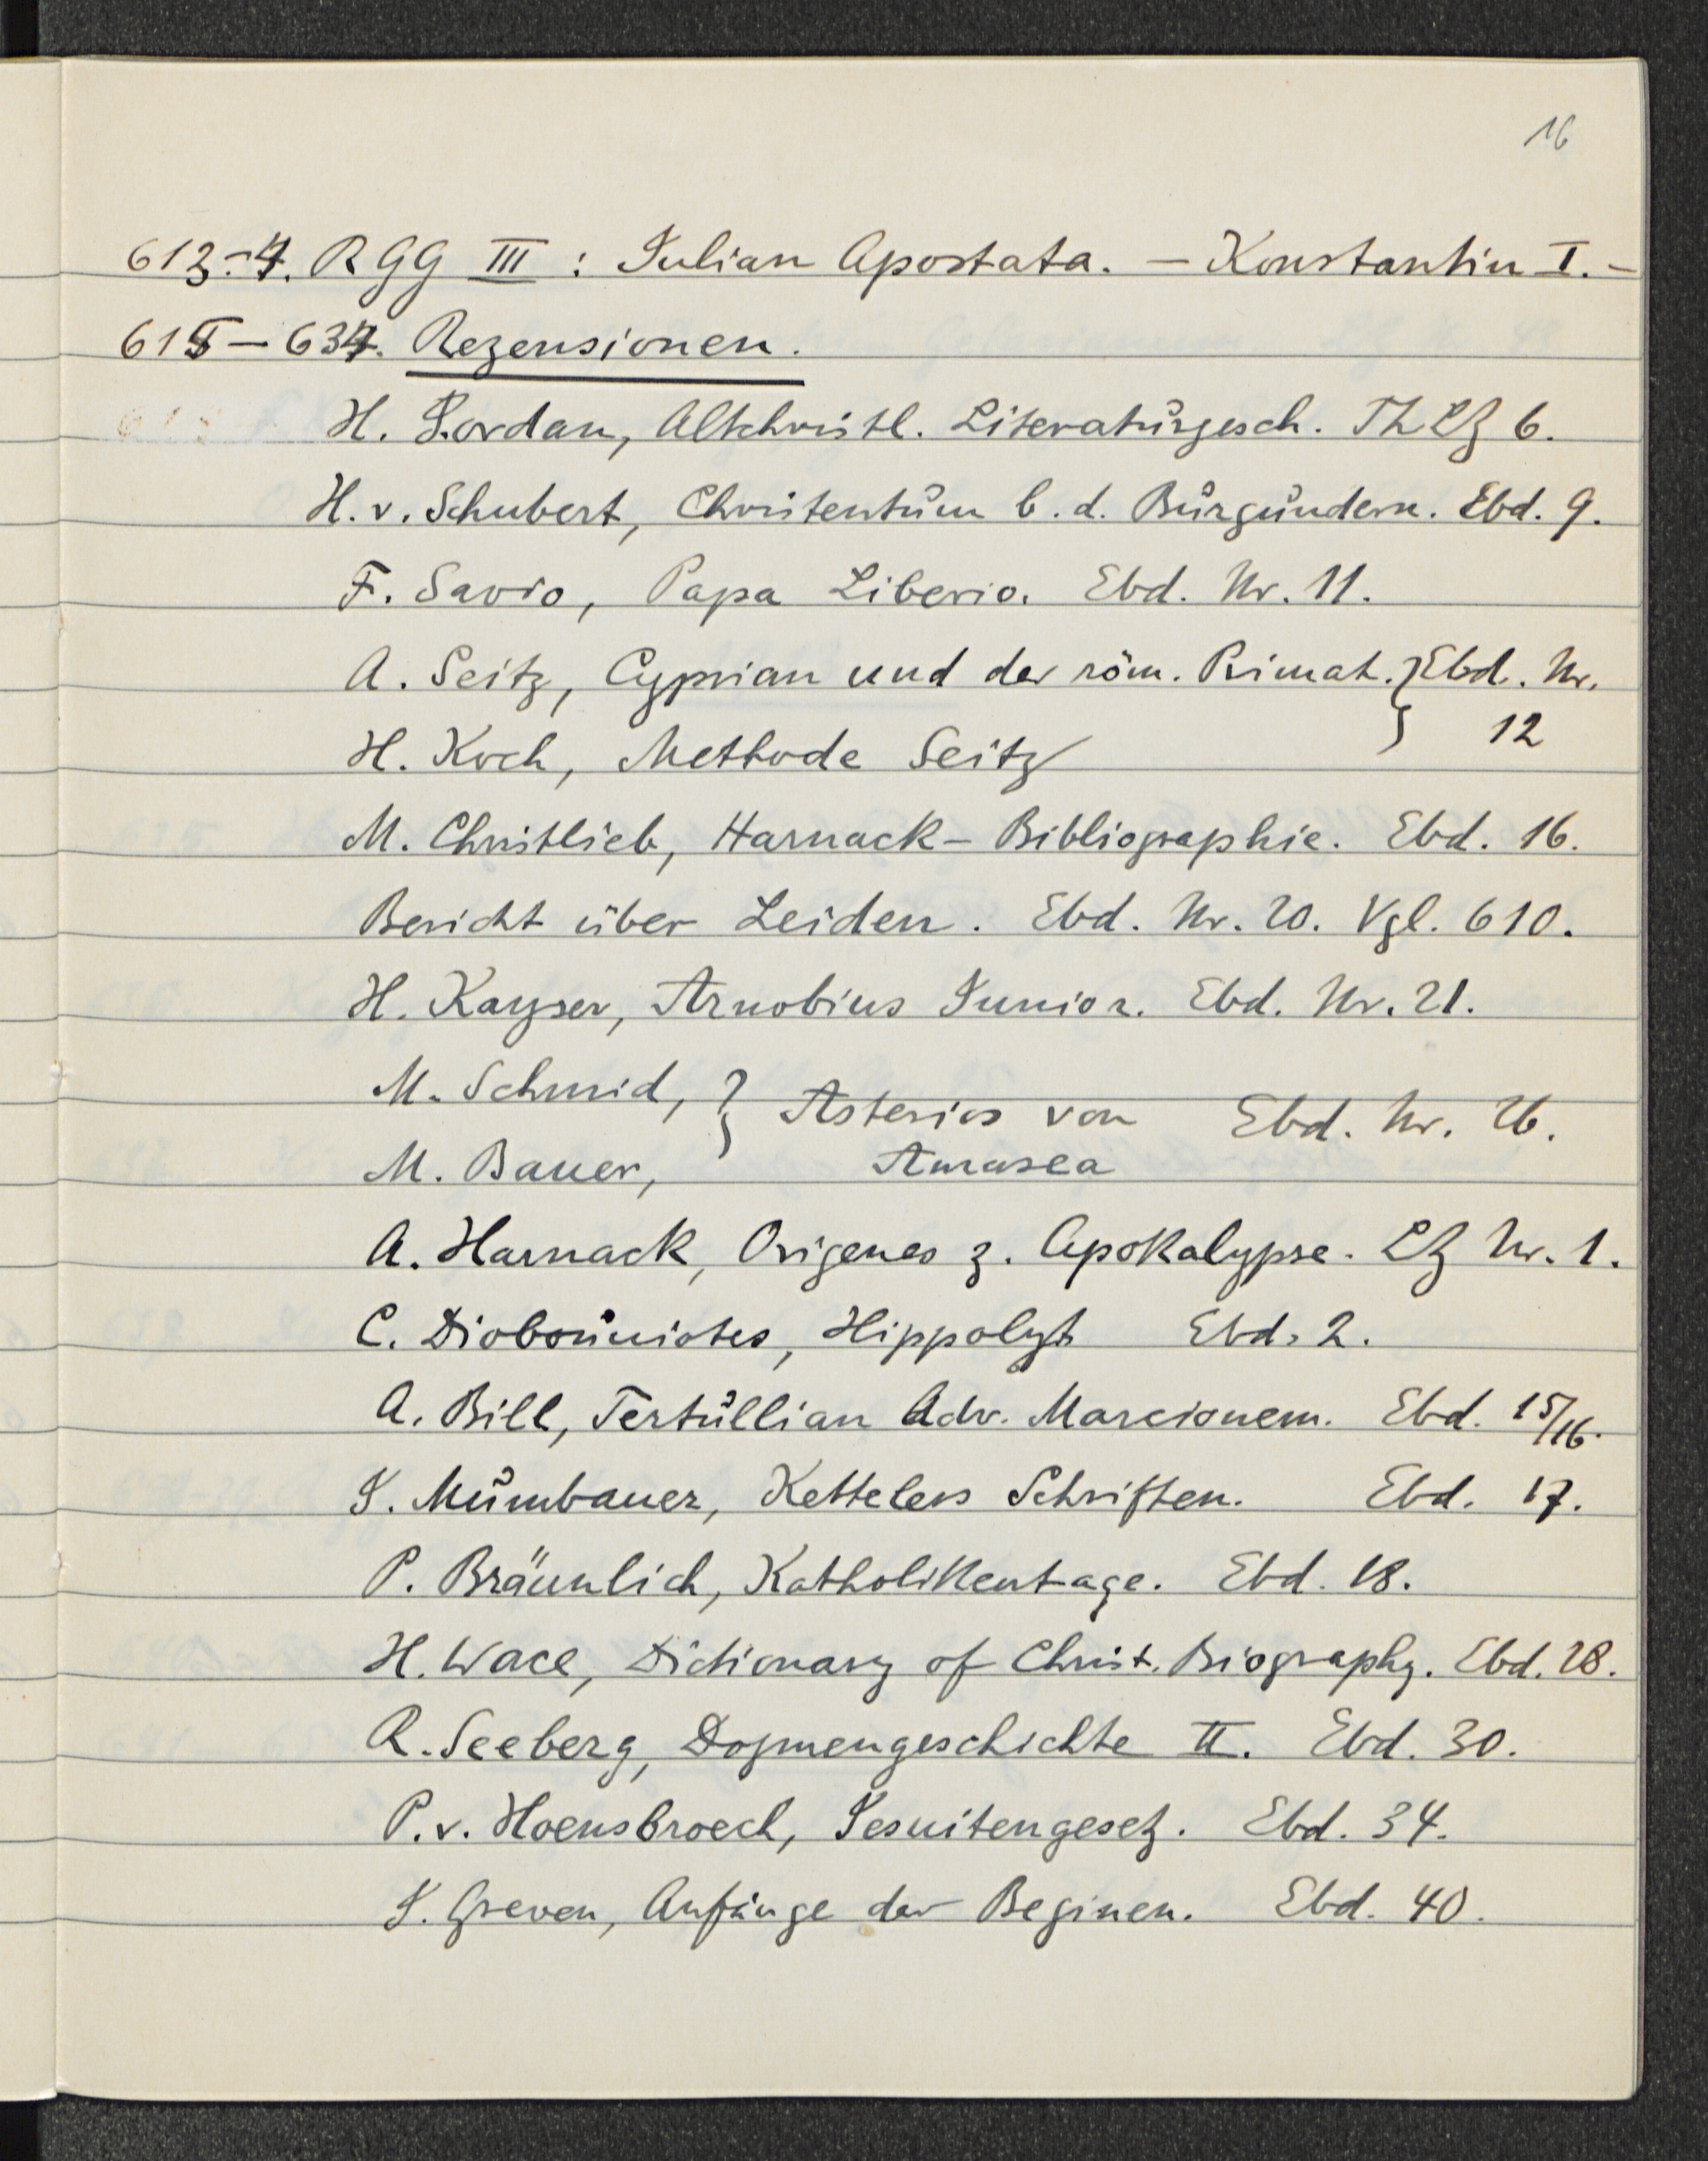 16
613-4. RGG III : Julian Apostata. – Konstantin I. –
615 – 634. Rezensionen.
H. Jordan, Altchristl. Literaturgesch. ThLZ 6.
H. v. Schubert, Christentum b. d. Burgundern. Ebd. 9.
F. Savio, Papa Liberio. Ebd. Nr. 11.
A. Seitz, Cyprian und der röm. Primat. } Ebd. Nr.
H. Koch, Methode Seitz } 12
M. Christlieb, Harnack-Bibliographie. Ebd. 16.
Bericht über Leiden. Ebd. Nr. 20. Vgl. 610.
H. Kayser, Arnobius Junior. Ebd. Nr. 21.
M. Schmid, } Asterios von Ebd. Nr. 26.
M. Bauer, Amasea
A. Harnack, Origenes z. Apokalypse. LZ Nr. 1.
C. Diobouniotes, Hippolyt Ebd. 2.
A. Bill, Tertullian Adv. Marcionem. Ebd. 15/16.
J. Mumbauer, Kettelers Schriften. Ebd. 17.
P. Bräunlich, Katholikentage. Ebd. 18.
H. Wace, Dictionary of Christ. Biography. Ebd. 28.
R. Seeberg, Dogmengeschichte II. Ebd. 30.
P. v. Hoensbroech, Jesuitengesetz. Ebd. 34.
J. Greven, Anfänge der Beginen. Ebd. 40.